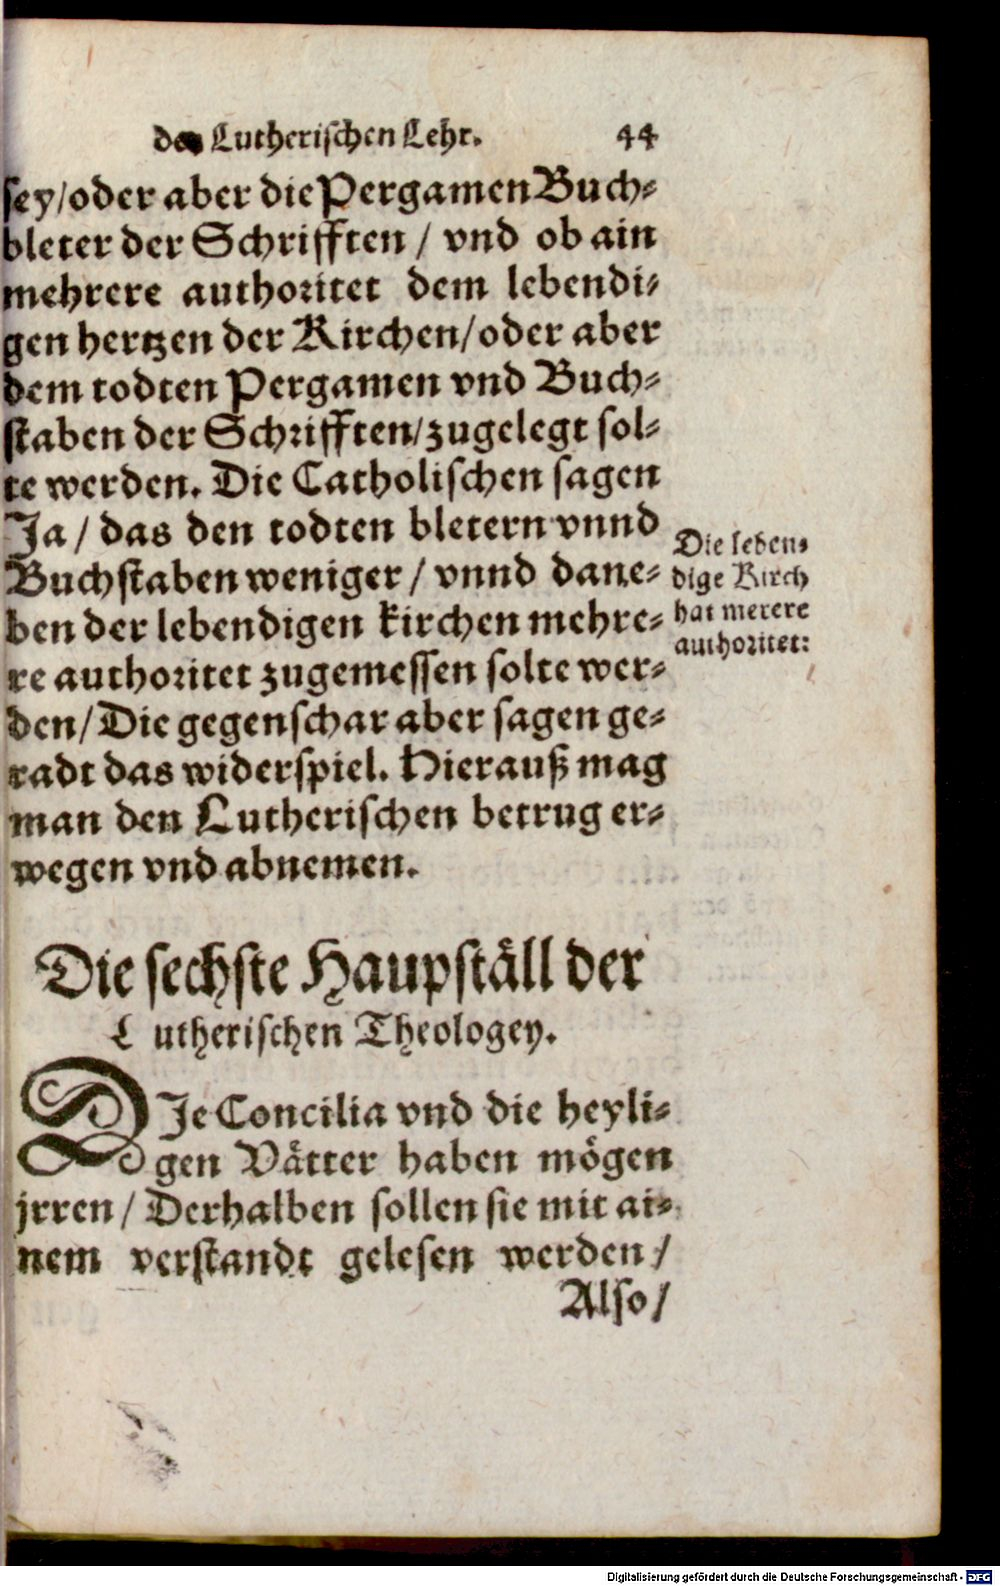 der Lutherischen Lehr. 44
sey/oder aber die Pergamen Buch⸗
bleter der Schrifften / vnd ob ain
mehrere authoritet dem lebendi⸗
gen hertzen der Kirchen/oder aber
dem todten Pergamen vnd Buch⸗
staben der Schrifften/zugelegt sol⸗
te werden. Die Catholischen sagen
Ja / das den todten bletern vnnd
Buchstaben weniger / vnnd dane⸗
ben der lebendigen kirchen mehre⸗
re authoritet zugemessen solte wer⸗
den/Die gegenschar aber sagen ge⸗
radt das widerspiel. Hierauß mag
man den Lutherischen betrug er⸗
wegen vnd abnemen.
Die leben⸗
dige Kirch
hat merere
authoritet:
Die sechste Haupställ der
Lutherischen Theologey.
DJe Concilia vnd die heyli⸗
gen Vätter haben mögen
jrren / Derhalben sollen sie mit ai⸗
nem verstandt gelesen werden /
Also /
Digitalisierung gefördert durch die Deutsche Forschungsgemeinschaft - DFG